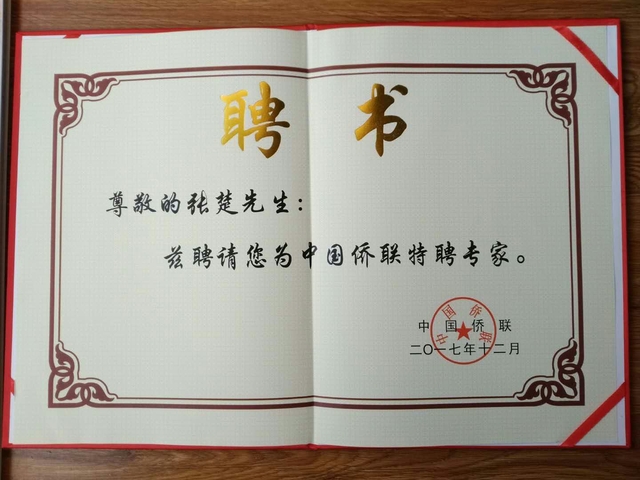 聘书
尊敬的张楚先生：
兹聘请您为中国侨联特聘专家。
中国侨联
中国侨联
二〇一七年十二月